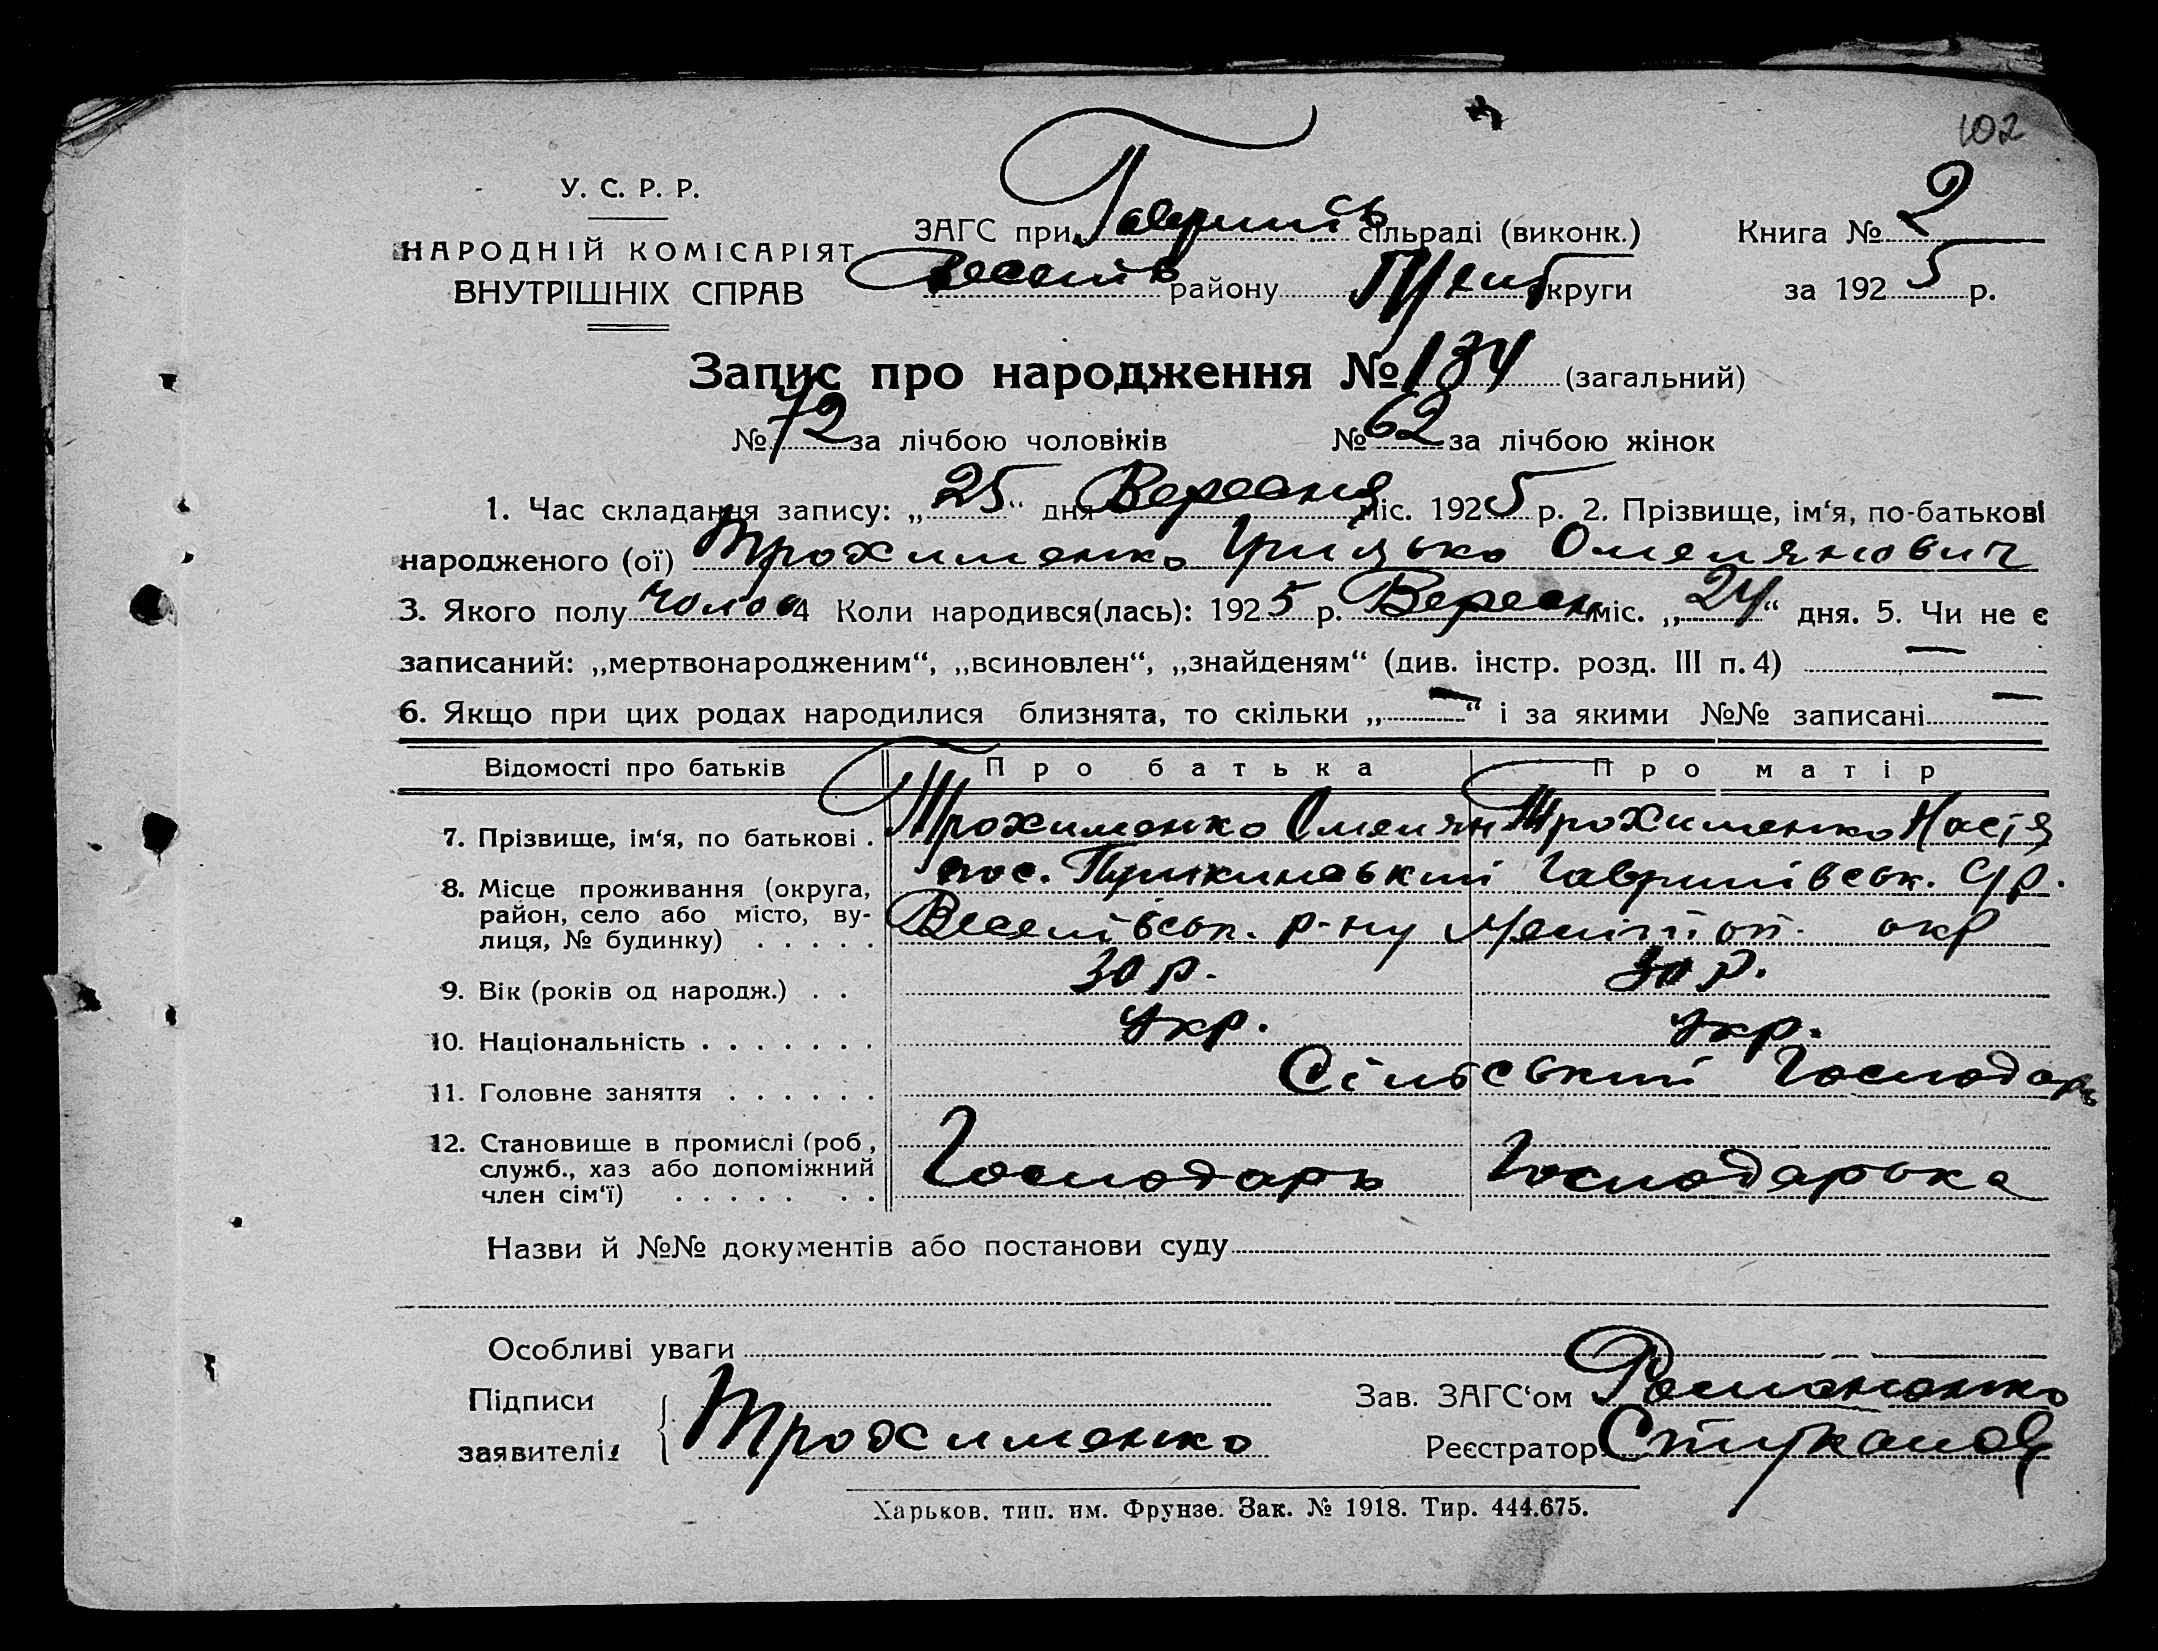 102
У. С. Р. Р.
НАРОДНІЙ КОМІСАРІЯТ
ВНУТРІШНІХ СПРАВ
ЗАГС при сільраді (виконк.) Книга № 2
району округи за 1925 р.
Запис про народження № 134 (загальний)
№ 72 за лічбою чоловіків № 62 за лічбою жінок
1. Час складання запису: „25“ дня Вересня міс. 1925 р. 2. Прізвище, ім‘я, по-батькові
народженого (ої) Трохименко Грицько Омелянович
3. Якого полу чолов 4 Коли народився(лась): 1925 р. Вересн міс. „24“ дня. 5. Чи не є
записаний: „мертвонародженим“, „всиновлен“, „знайденям“ (див. інстр. розд. III п. 4) —
6. Якщо при цих родах народилися близнята, то скільки „—“ і за якими №№ записані —
Відомості про батьків Про батька Про матір
7. Прізвище, ім‘я, по батькові . Трохименко Омелян Трохименко Настя
8. Місце проживання (округа, район, село або місто, вулиця, № будинку) . . . . . пос. Пушкинський Гаврилівськ. с/р.
Веселівськ. р-ну Меліт̄оп̄. окр
9. Вік (років од народж.) . . 30 р. 30 р.
10. Національність . . . . . . . Укр. Укр.
11. Головне заняття . . . . . . Сільський Господарь
12. Становище в промислі (роб, служб., хаз або допоміжний член сім‘ї) . . . . . . . Господарь Господарька
Назви й №№ документів або постанови суду
Особливі уваги
Підписи заявителів Трохименко
Зав. ЗАГС‘ом Романенко
Реєстратор
Харьков. тип. им. Фрунзе. Зак. № 1918. Тир. 444.675.